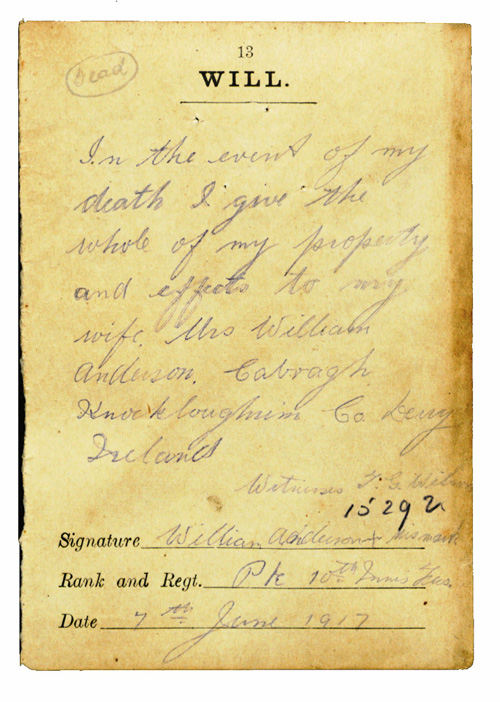 13
Dead
WILL.
In the event of my
death I give the
whole of my property
and effects to my
wife. Mrs William
Anderson. Cabragh
Knockloughrim Co Derry
Ireland
Witness T. G. Wilson
15292
Signature William Anderson + his mark
Rank and Regt. Pte 10th Innis Fus.
Date 7th June 1917